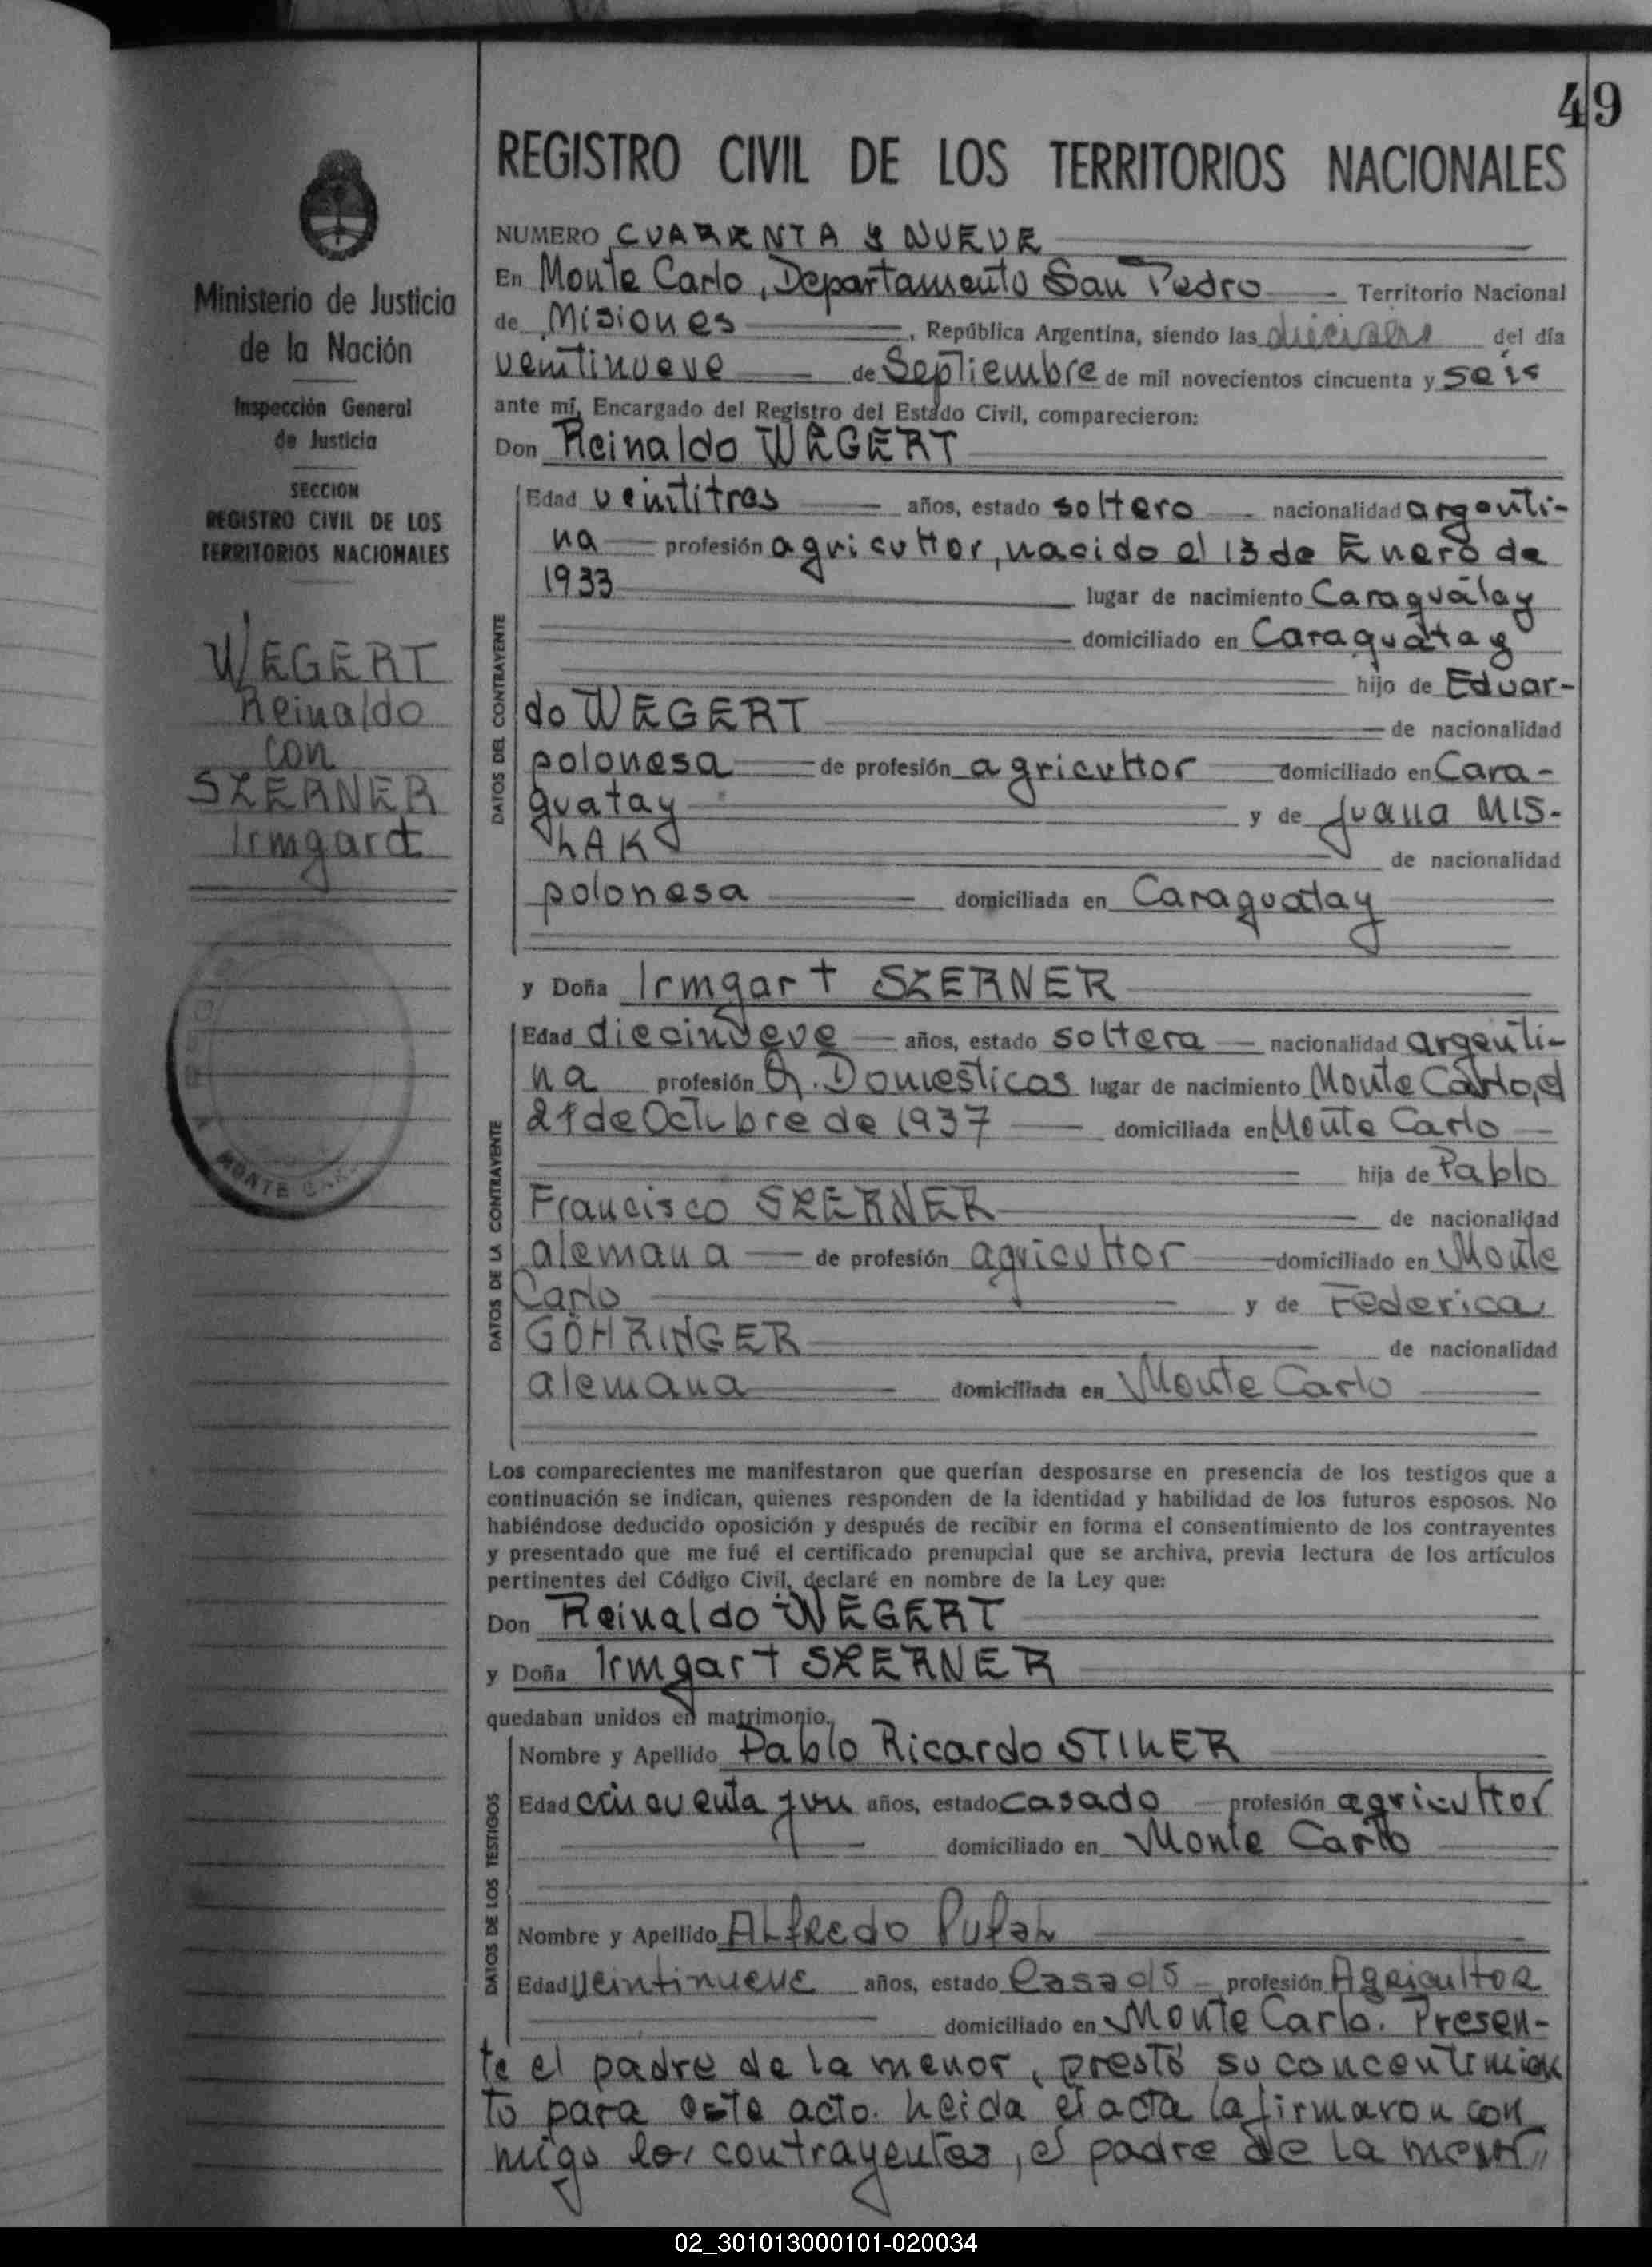 49
REGISTRO CIVIL DE LOS TERRITORIOS NACIONALES
Ministerio de Justicia
de la Nación
Inspección General
de Justicia
SECCION
REGISTRO CIVIL DE LOS
TERRITORIOS NACIONALES
WEGERT
Reinaldo
con
SZERNER
Irmgart
MONTE
NUMERO CUARENTA Y NUEVE
En Monte Carlo, Departamento San Pedro Territorio Nacional
de Misiones, República Argentina, siendo las del día
veintinueve de Septiembre de mil novecientos cincuenta y seis
ante mí, Encargado del Registro del Estado Civil, comparecieron:
Don Reinaldo WEGERT
DATOS DEL CONTRAYENTE
Edad veintitres años, estado soltero nacionalidad argenti-
na profesión agricultor, nacido el 13 de Enero de
1933 lugar de nacimiento Caraguatay
domiciliado en Caraguatay
hijo de Eduar-
do WEGERT de nacionalidad
polonesa de profesión agricultor domiciliado en Cara-
guatay y de Juana MIS-
LAK de nacionalidad
polonesa domiciliada en Caraguatay
y Doña Irmgart SZERNER
DATOS DE LA CONTRAYENTE
Edad diecinueve años, estado soltera nacionalidad argenti-
na profesión Q. Domesticos lugar de nacimiento Monte Carlo, el
21 de Octubre de 1937 domiciliada en Monte Carlo
hija de Pablo
Francisco SZERNER de nacionalidad
alemana de profesión agricultor domiciliado en Monte
Carlo y de Federica
GÖHRINGER de nacionalidad
alemana domiciliada en Monte Carlo
Los comparecientes me manifestaron que querían desposarse en presencia de los testigos que a
continuación se indican, quienes responden de la identidad y habilidad de los futuros esposos. No
habiéndose deducido oposición y después de recibir en forma el consentimiento de los contrayentes
y presentado que me fué el certificado prenupcial que se archiva, previa lectura de los artículos
pertinentes del Código Civil, declaré en nombre de la Ley que:
Don Reinaldo WEGERT
y Doña Irmgart SZERNER
quedaban unidos en matrimonio.
DATOS DE LOS TESTIGOS
Nombre y Apellido Pablo Ricardo STILLER
Edad cincuenta y un años, estado casado profesión agricultor
domiciliado en Monte Carlo
Nombre y Apellido Alfredo
Edad veintinueve años, estado casado profesión Agricultor
domiciliado en Monte Carlo. Presen-
te el padre de la menor, prestó su concentimien
to para este acto. Leida el acta la firmaron con
migo los contrayentes, el padre de la menor,,
02_301013000101-020034